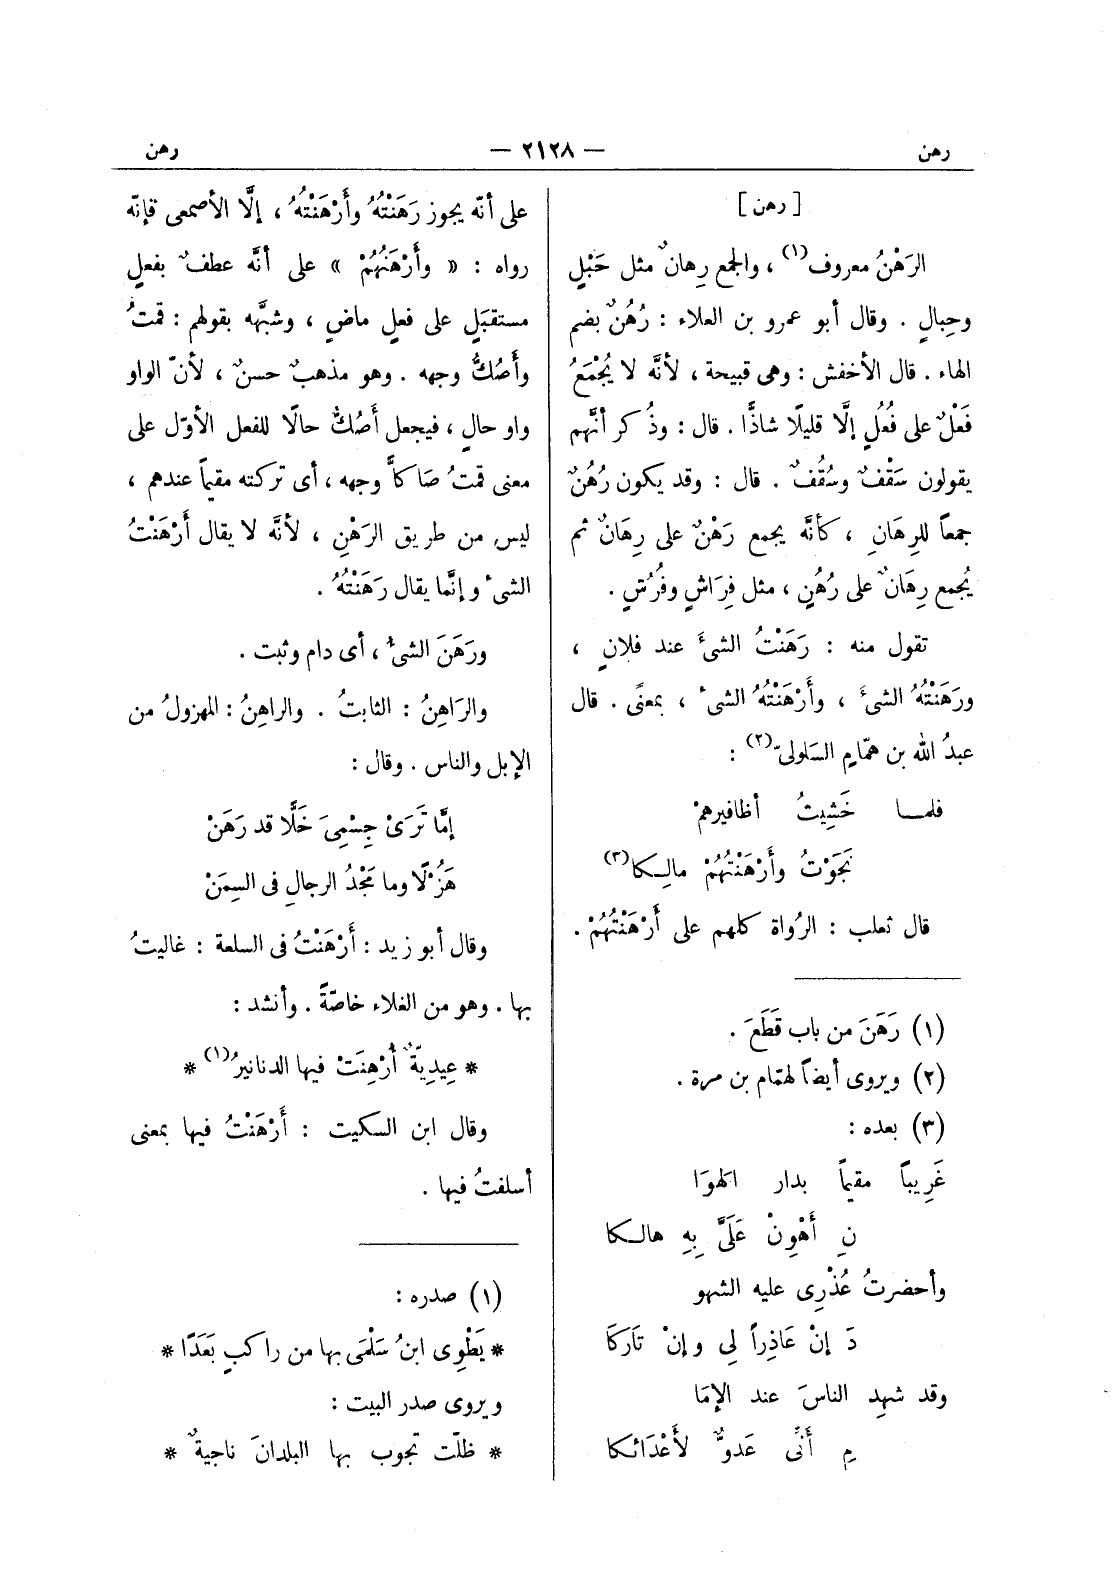 رهن — ٢١٢٨ — رهن
[ رهن ]
الرَهْنُ معروف(١) ، والجمع رِهانٌ مثل حَبْلٍ
وحِبالٍ . وقال أبو عمرو بن العلاء : رُهُنٌ بضم
الهاء . قال الأخفش : وهى قبيحة ، لأنَّه لا يُجْمَعُ
فَعْلٌ على فُعُلٍ إلَّا قليلًا شاذًّا . قال : وذُكر أنَّهم
يقولون سَقْفٌ وسُقُفٌ . قال : وقد يكون رُهُنٌ
جمعاً للرِهَانِ ، كأنَّه يجمع رَهْنٌ على رِهَانٌ ثم
يُجمع رِهَانٌ على رُهُنٍ ، مثل فِرَاشٍ وفُرُشٍ .
تقول منه : رَهَنْتُ الشىءَ عند فلانٍ ،
ورَهَنْتُهُ الشىءَ ، وأَرْهَنْتُهُ الشىءَ ، بمعنًى . قال
عبدُ الله بن همَّامٍ السَلولىّ(٢) :
فلمــا خَشِيتُ أظافيرهمْ
نَجَوْتُ وأَرْهَنْتُهُمْ مالِـكا(٣)
قال ثعلب : الرُواة كلهم على أَرْهَنْتُهُمْ .
(١) رَهَنَ من باب قَطَعَ .
(٢) ويروى أيضاً لهمّام بن مرة .
(٣) بعده :
غَرِيباً مقيماً بدار الهوَا
نِ أَهْوِنْ عَلَىَّ بِهِ هالــكا
وأحضرتُ عُذْرِى عليه الشهو
دَ إنْ عَاذِراً لِى وإنْ تَارَكَا
وقد شهِد الناسَ عند الإمَا
مِ أَنِّى عَدوٌّ لأَعْدَائـكا
على أنّه يجوز رَهَنْتُهُ وأَرْهَنْتُهُ ، إلَّا الأصمعى فإنّه
رواه : « وأَرْهَنُهُمْ » على أنَّه عطفٌ بفعلٍ
مستقبَلٍ على فعلٍ ماضٍ ، وشبَّهه بقولهم : قمتُ
وأَصُكُّ وجهه . وهو مذهبٌ حسنٌ ، لأنّ الواو
واو حالٍ ، فيجعل أَصُكُّ حالًا للفعل الأوّل على
معنى قمتُ صَاكاًّ وجهه ، أى تركته مقيماً عندهم ،
ليس من طريق الرَهْنِ ، لأنَّه لا يقال أَرْهَنْتُ
الشىءَ وإنَّما يقال رَهَنْتُهُ .
ورَهَنَ الشىءُ ، أى دام وثبت .
والرَاهِنُ : الثابتُ . والراهِنُ : المهزولُ من
الإبل والناس . وقال :
إمَّا تَرَىْ جِسْمِىَ خَلًّا قد رَهَنْ
هَزْلًا وما مَجْدُ الرجالِ فى السِمَنْ
وقال أبو زيد : أَرْهَنْتُ فى السلعة : غاليتُ
بها . وهو من الغلاء خاصّةً . وأنشد :
* عِيدِيَّةٌ أُرْهِنَتْ فيها الدنانيرُ(١) *
وقال ابن السكيت : أَرْهَنْتُ فيها بمعنى
أسلفتُ فيها .
(١) صدره :
* يَطْوِى ابنُ سَلْمَى بها من راكبٍ بَعَدًا *
ويروى صدر البيت :
* ظلّت تجوب بها البلدانَ ناجيةٌ *